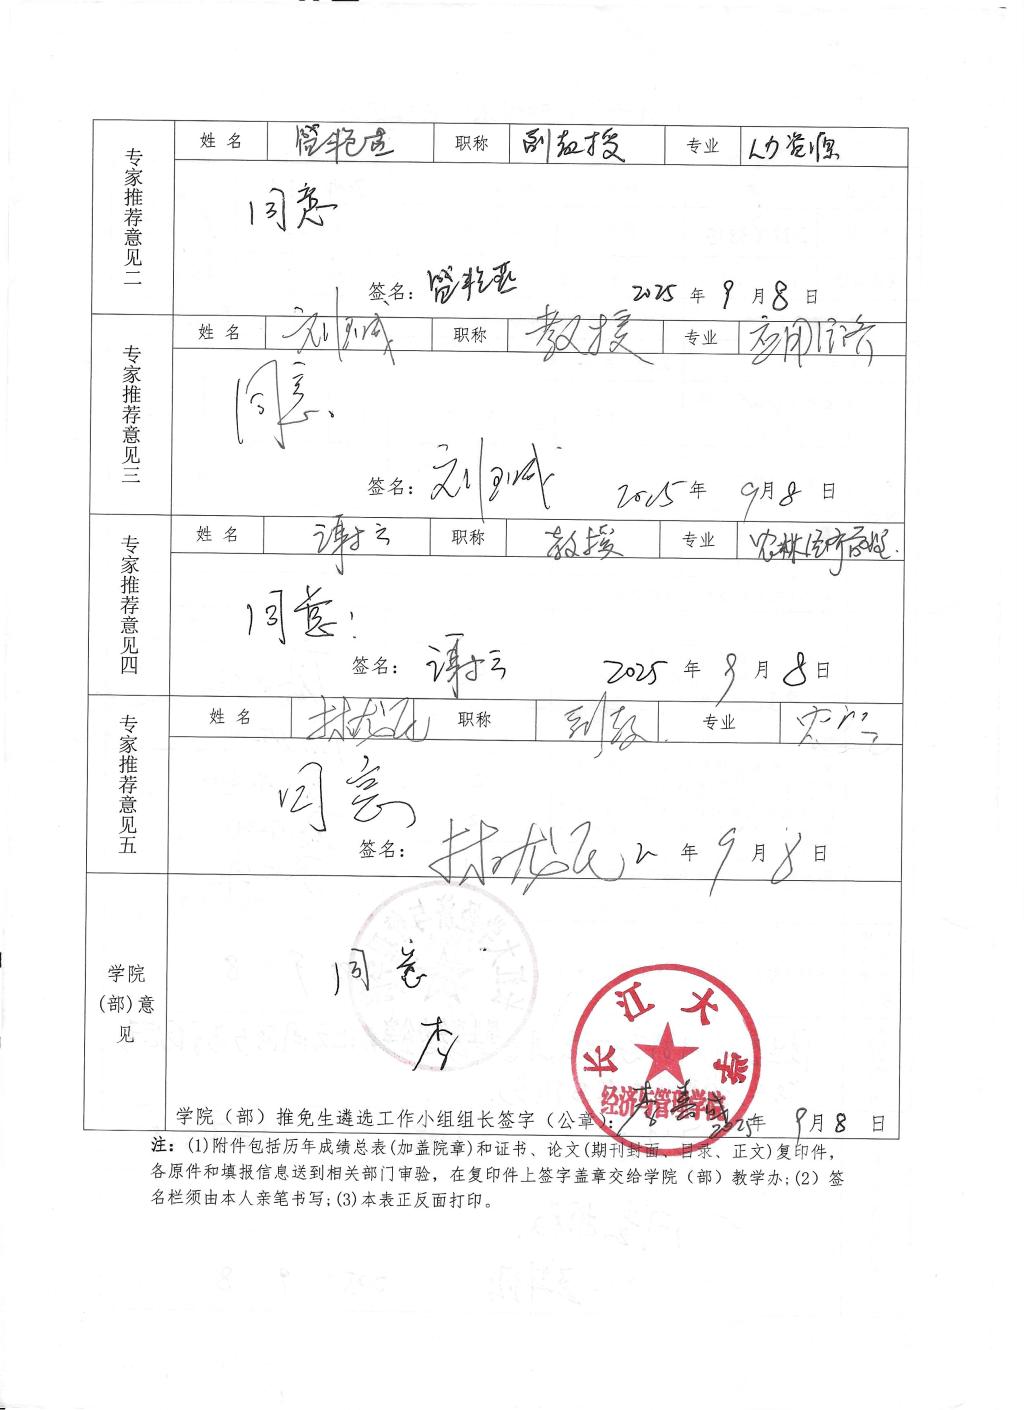 专家推荐意见二
姓 名 职称 副教授 专业 人力资源
同意
签名： 2025 年 9 月 8 日
专家推荐意见三
姓 名 刘玉成 职称 教授 专业 应用经济
同意、
签名： 刘玉成 2025 年 9 月 8 日
专家推荐意见四
姓 名 谢云 职称 教授 专业 农林经济管理.
同意！
签名： 谢云 2025 年 9 月 8 日
专家推荐意见五
姓 名 职称 副教 专业
同意
签名： 年 9 月 8 日
学院(部)意见
同意
李
长江大学
经济与管理学院
学院（部）推免生遴选工作小组组长签字（公章）： 2025 年 9 月 8 日
注：(1)附件包括历年成绩总表(加盖院章)和证书、论文(期刊封面、目录、正文)复印件，
各原件和填报信息送到相关部门审验，在复印件上签字盖章交给学院（部）教学办;(2) 签
名栏须由本人亲笔书写;(3)本表正反面打印。